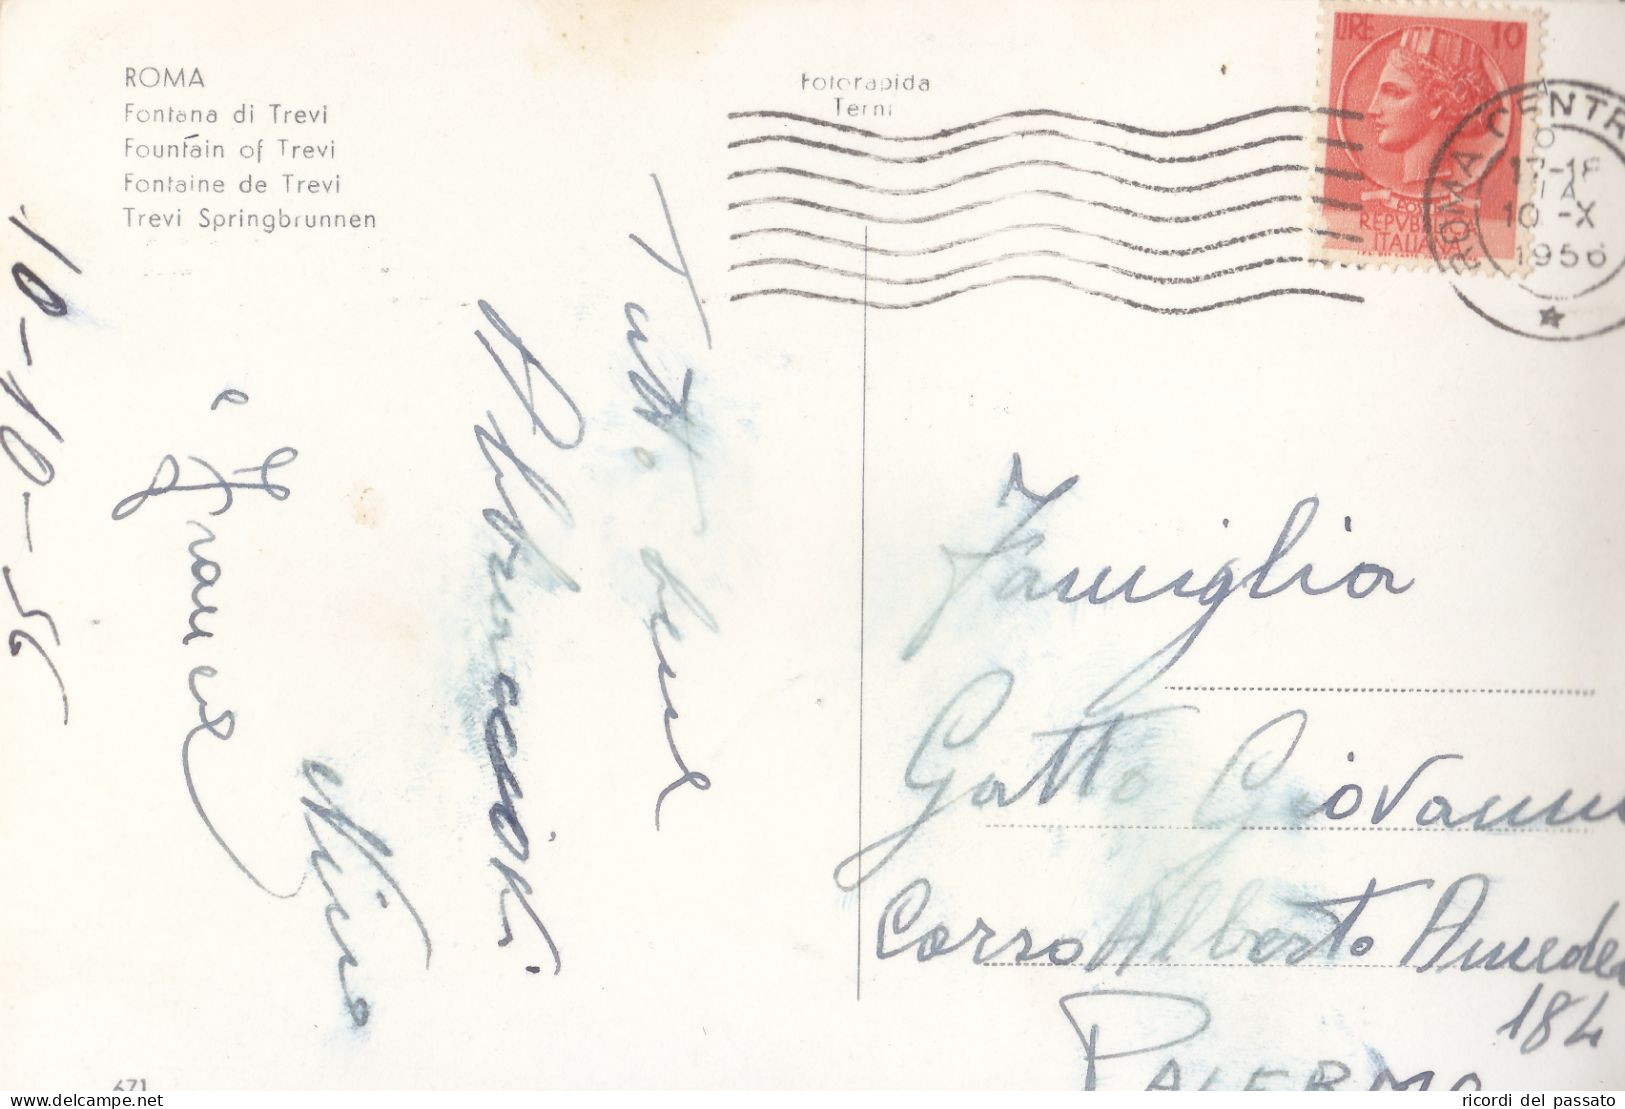 ROMA
Fontana di Trevi
Fountain of Trevi
Fontaine de Trevi
Trevi Springbrunnen
Fotorapida
Terni
LIRE 10
REPVBBLICA
ITALIANA
ROMA CENTRO
17-18
10-X
1956
10-10-56
Tutto bene
Abbraccioti
Nino
e Franco
Famiglia
Gatto Giovanni
Corso Alberto Amedeo
184
PALERMO
671
ricordi del passato